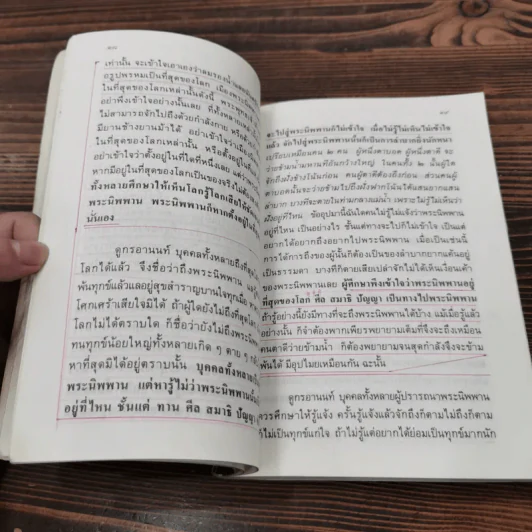 ๒๘
เท่านั้น จะเข้าใจเอาเองว่า
อรูปพรหมเป็นที่สุดของโลก เมื่อพระนิพพาน
ในที่สุดของโลกเหล่านั้นดังนี้
อย่าพึงเข้าใจอย่างนั้นเลย ที่ทั้งหลาย
ไม่สามารถจักไปถึงด้วยกำลังกาย หรือ
มียานช้างยานม้าได้ อย่าเข้าใจว่า
ที่สุดของโลกเหล่านั้น หรือตั้งอยู่
อย่าเข้าใจว่าตั้งอยู่ในที่ใดที่หนึ่งเลย แต่ว่า
หากมีอยู่ในที่สุดแห่งโลกเป็นของจริงไม่ต้อง
ทั้งหลายศึกษาให้เห็นโลกรู้โลกเสียให้ชัด
พระนิพพาน พระนิพพานก็หากตั้งอยู่ใน
นั้นเอง
ดูกรอานนท์ บุคคลทั้งหลายถึงที่สุด
โลกได้แล้ว จึงชื่อว่าถึงพระนิพพาน
พ้นทุกข์แล้วแลอยู่สุขสำราญบานใจทุกเมื่อ
โศกเศร้าเสียใจมิได้ ถ้าผู้ใดยังไม่ถึงที่สุด
โลกไม่ได้ตราบใด ก็ชื่อว่ายังไม่ถึงพระนิพพาน
ทนทุกข์น้อยใหญ่ทั้งหลายเกิด ๆ ตาย ๆ
หาที่สุดมิได้อยู่ตราบนั้น บุคคลทั้งหลาย
พระนิพพาน แต่หารู้ไม่ว่าพระนิพพานนั้น
อยู่ที่ไหน ชั้นแต่ ทาน ศีล สมาธิ ปัญญา
๒๙
จะไปสู่พระนิพพานก็ไม่เข้าใจ เมื่อไม่รู้ไม่เห็นไม่เข้าใจ
แล้ว จักไปสู่พระนิพพานนั้นก็เป็นการลำบากยิ่งนักหนา
เปรียบเหมือนคน ๒ คน ผู้หนึ่งตาบอด ผู้หนึ่งตาดี จะ
ว่ายข้ามน้ำมหานทีอันกว้างใหญ่ ในคนทั้ง ๒ นั้นผู้ใด
จักถึงฝั่งข้างโน้นก่อน คนผู้ตาดีต้องถึงก่อน ส่วนคนผู้
ตาบอดนั้นจะว่ายข้ามไปถึงฝั่งฟากโน้นได้แสนยากแสน
ลำบาก บางทีจะตายในท่ามกลางแม่น้ำ เพราะไม่รู้ไม่เห็นว่า
ฝั่งอยู่ที่ไหน ข้ออุปมานี้ฉันใดคนไม่รู้ไม่แจ้งว่าพระนิพพาน
อยู่ที่ไหน เป็นอย่างไร ชั้นแต่ทางจะไปก็ไม่เข้าใจ เป็นแต่
อยากได้อยากถึงอยากไปพระนิพพาน เมื่อเป็นเช่นนี้
การได้การถึงของผู้นั้นก็ต้องเป็นของลำบากยากแค้นอยู่
เป็นธรรมดา บางทีก็ตายเสียเปล่าจักไม่ได้เห็นเงื่อนเค้า
ของพระนิพพานเลย ผู้ศึกษาพึงเข้าใจว่าพระนิพพานอยู่
ที่สุดของโลก ศีล สมาธิ ปัญญา เป็นทางไปพระนิพพาน
ถ้ารู้อย่างนี้ยังมีทางที่จะถึงพระนิพพานได้บ้าง แม้เมื่อรู้แล้ว
อย่างนั้น ก็จำต้องพากเพียรพยายามเต็มที่จึงจะถึงเหมือน
คนตาดีว่ายข้ามน้ำ ก็ต้องพยายามจนสุดกำลังจึงจะข้าม
พ้นได้ มีอุปไมยเหมือนกัน ฉะนั้น
ดูกรอานนท์ บุคคลทั้งหลายผู้ปรารถนาพระนิพพาน
ควรศึกษาให้รู้แจ้ง ครั้นรู้แจ้งแล้วจักถึงก็ตามไม่ถึงก็ตาม
ก็ไม่เป็นทุกข์แก่ใจ ถ้าไม่รู้แต่อยากได้ย่อมเป็นทุกข์มากนัก